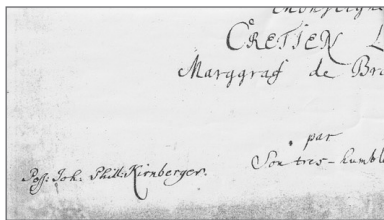 CRETIEN L
Marggraf de Bra
par
Son tres-humble
Poss: Joh. Phil: Kirnberger.